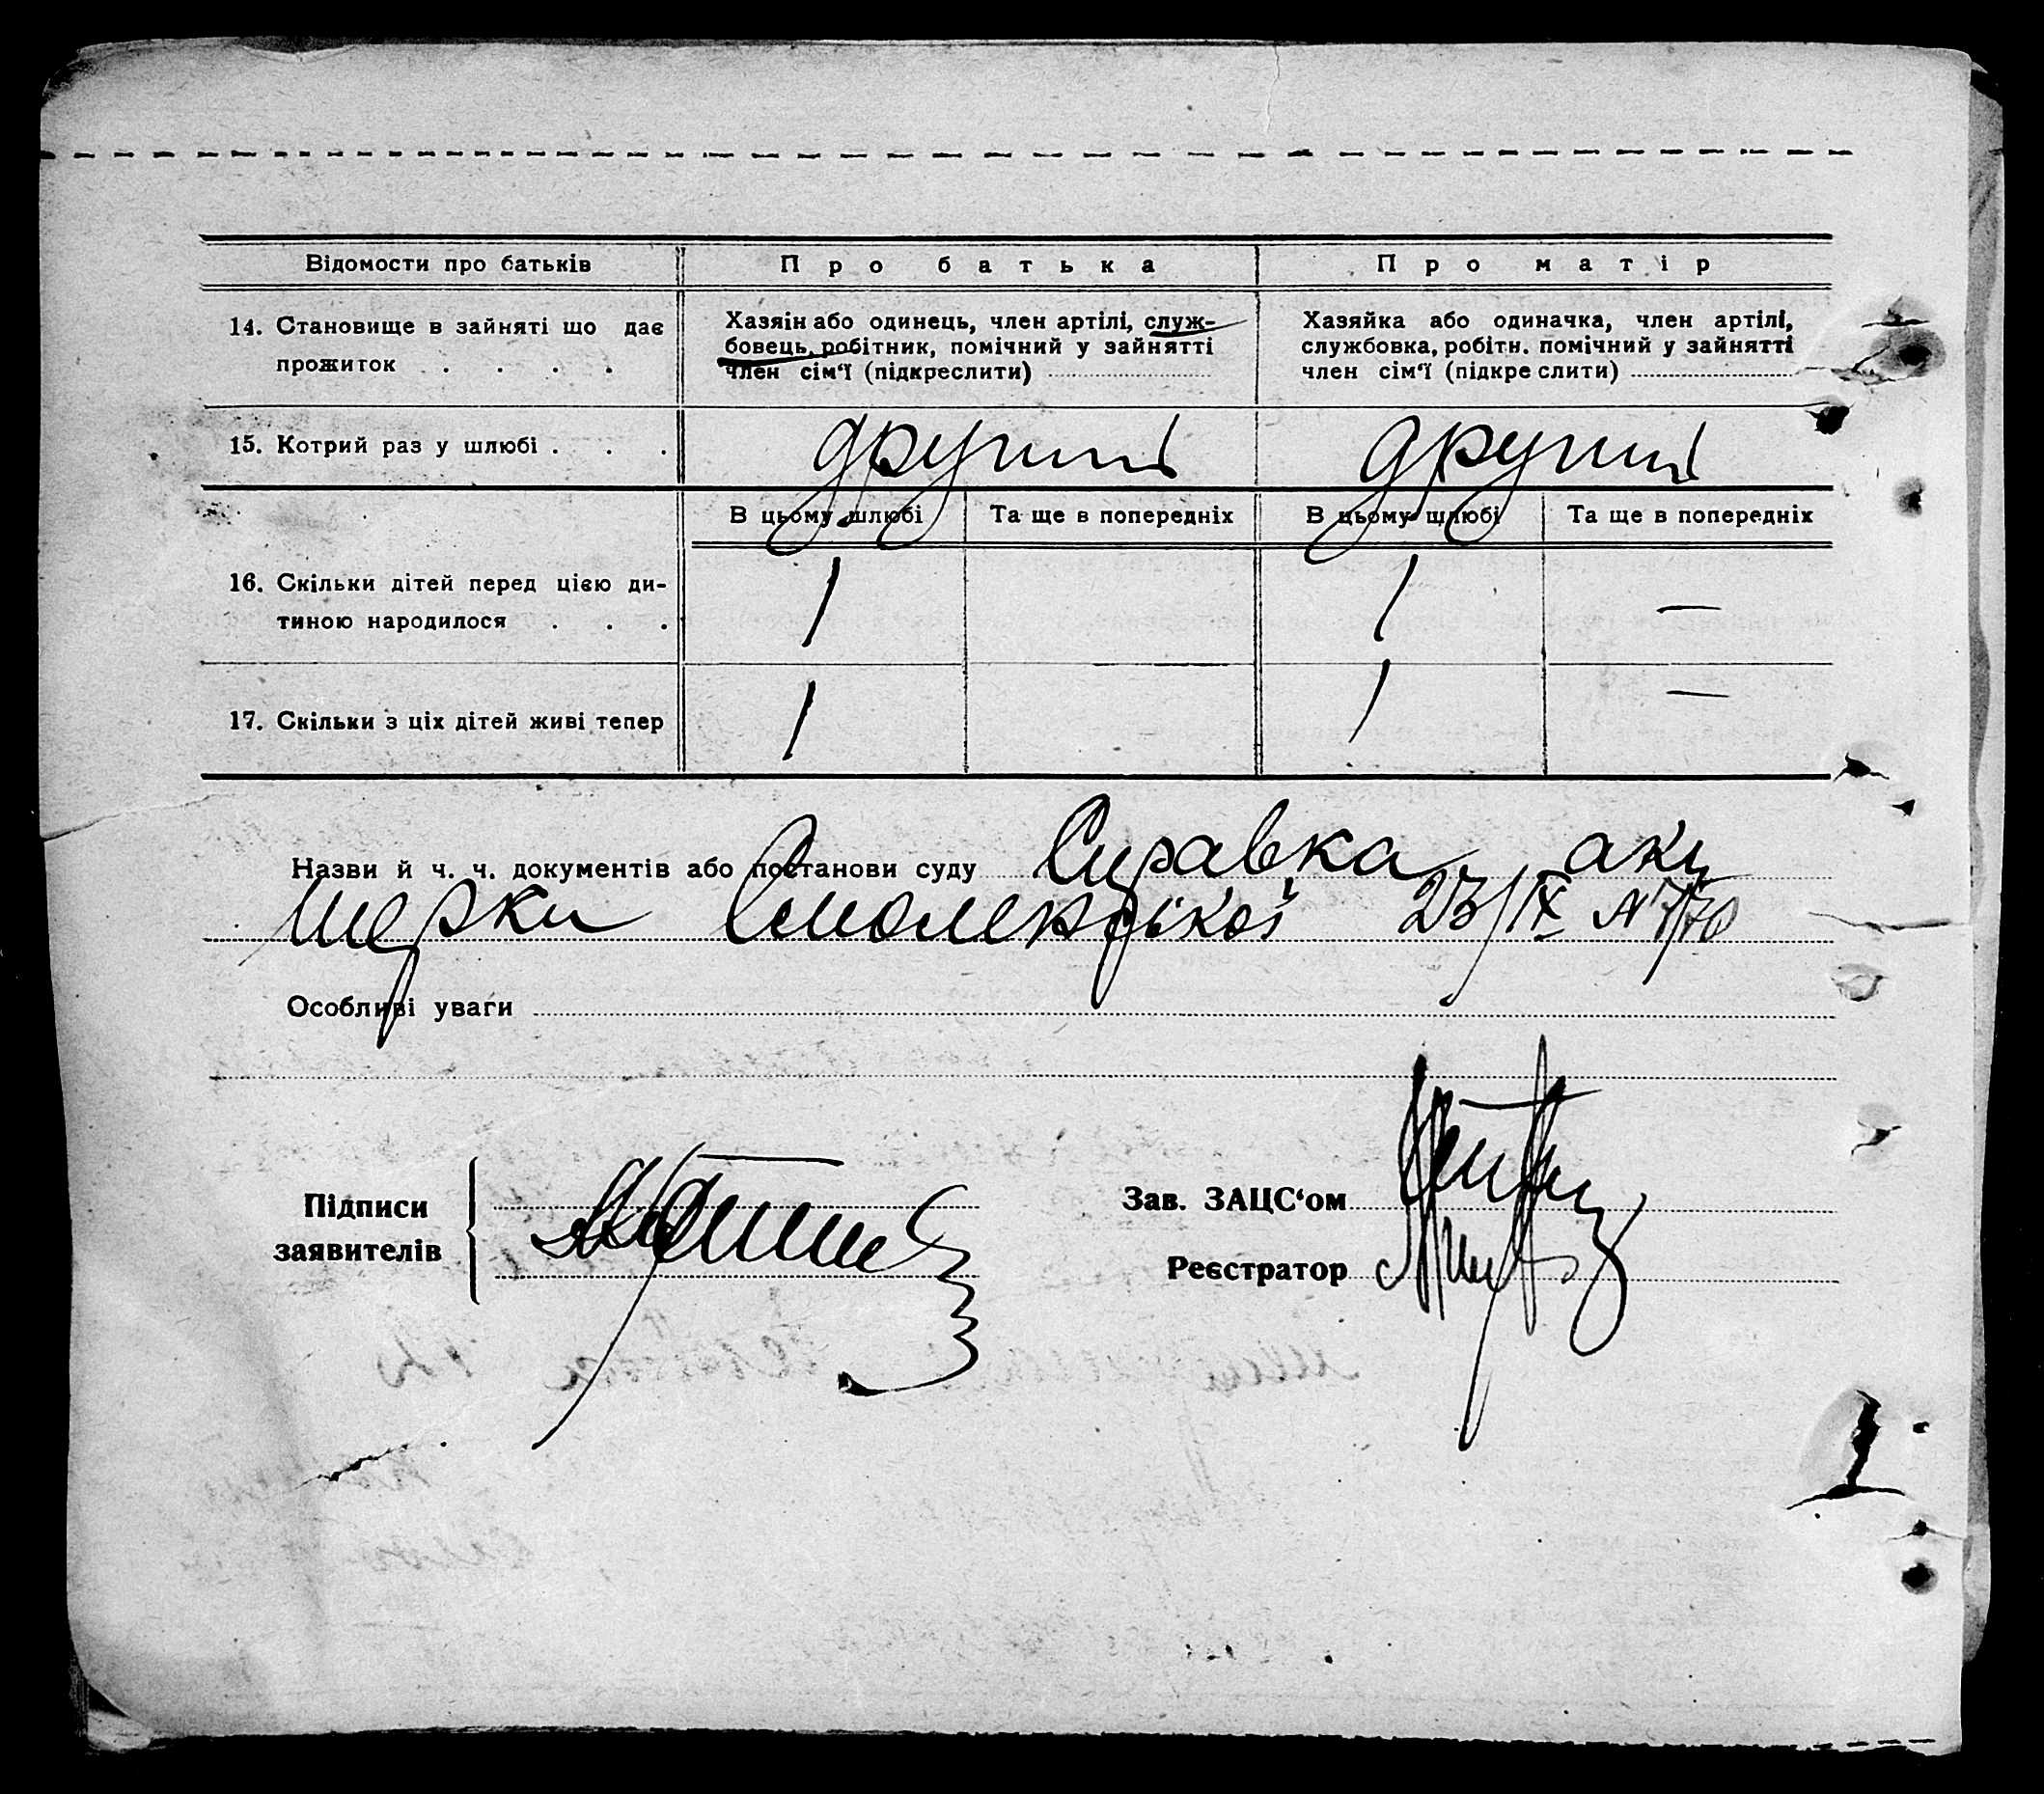 Відомости про батьків Про батька Про матір
14. Становище в зайняті що дає прожиток . . . .
Хазяїн або одинець, член артілі, служ-
бовець, робітник, помічний у зайнятті
член сім'ї (підкреслити)
Хазяйка або одиначка, член артілі,
службовка, робітн. помічний у зайнятті
член сім'ї (підкреслити)
15. Котрий раз у шлюбі . . . другий другий
В цьому шлюбі Та ще в попередніх В цьому шлюбі Та ще в попередніх
16. Скільки дітей перед цією ди-
тиною народилося . . . 1 1 —
17. Скільки з ціх дітей живі тепер 1 1 —
Назви й ч. ч. документів або постанови суду Справка аку
шерки 23/IX N
Особливі уваги
Підписи
заявителів
Зав. ЗАЦС'ом
Реєстратор